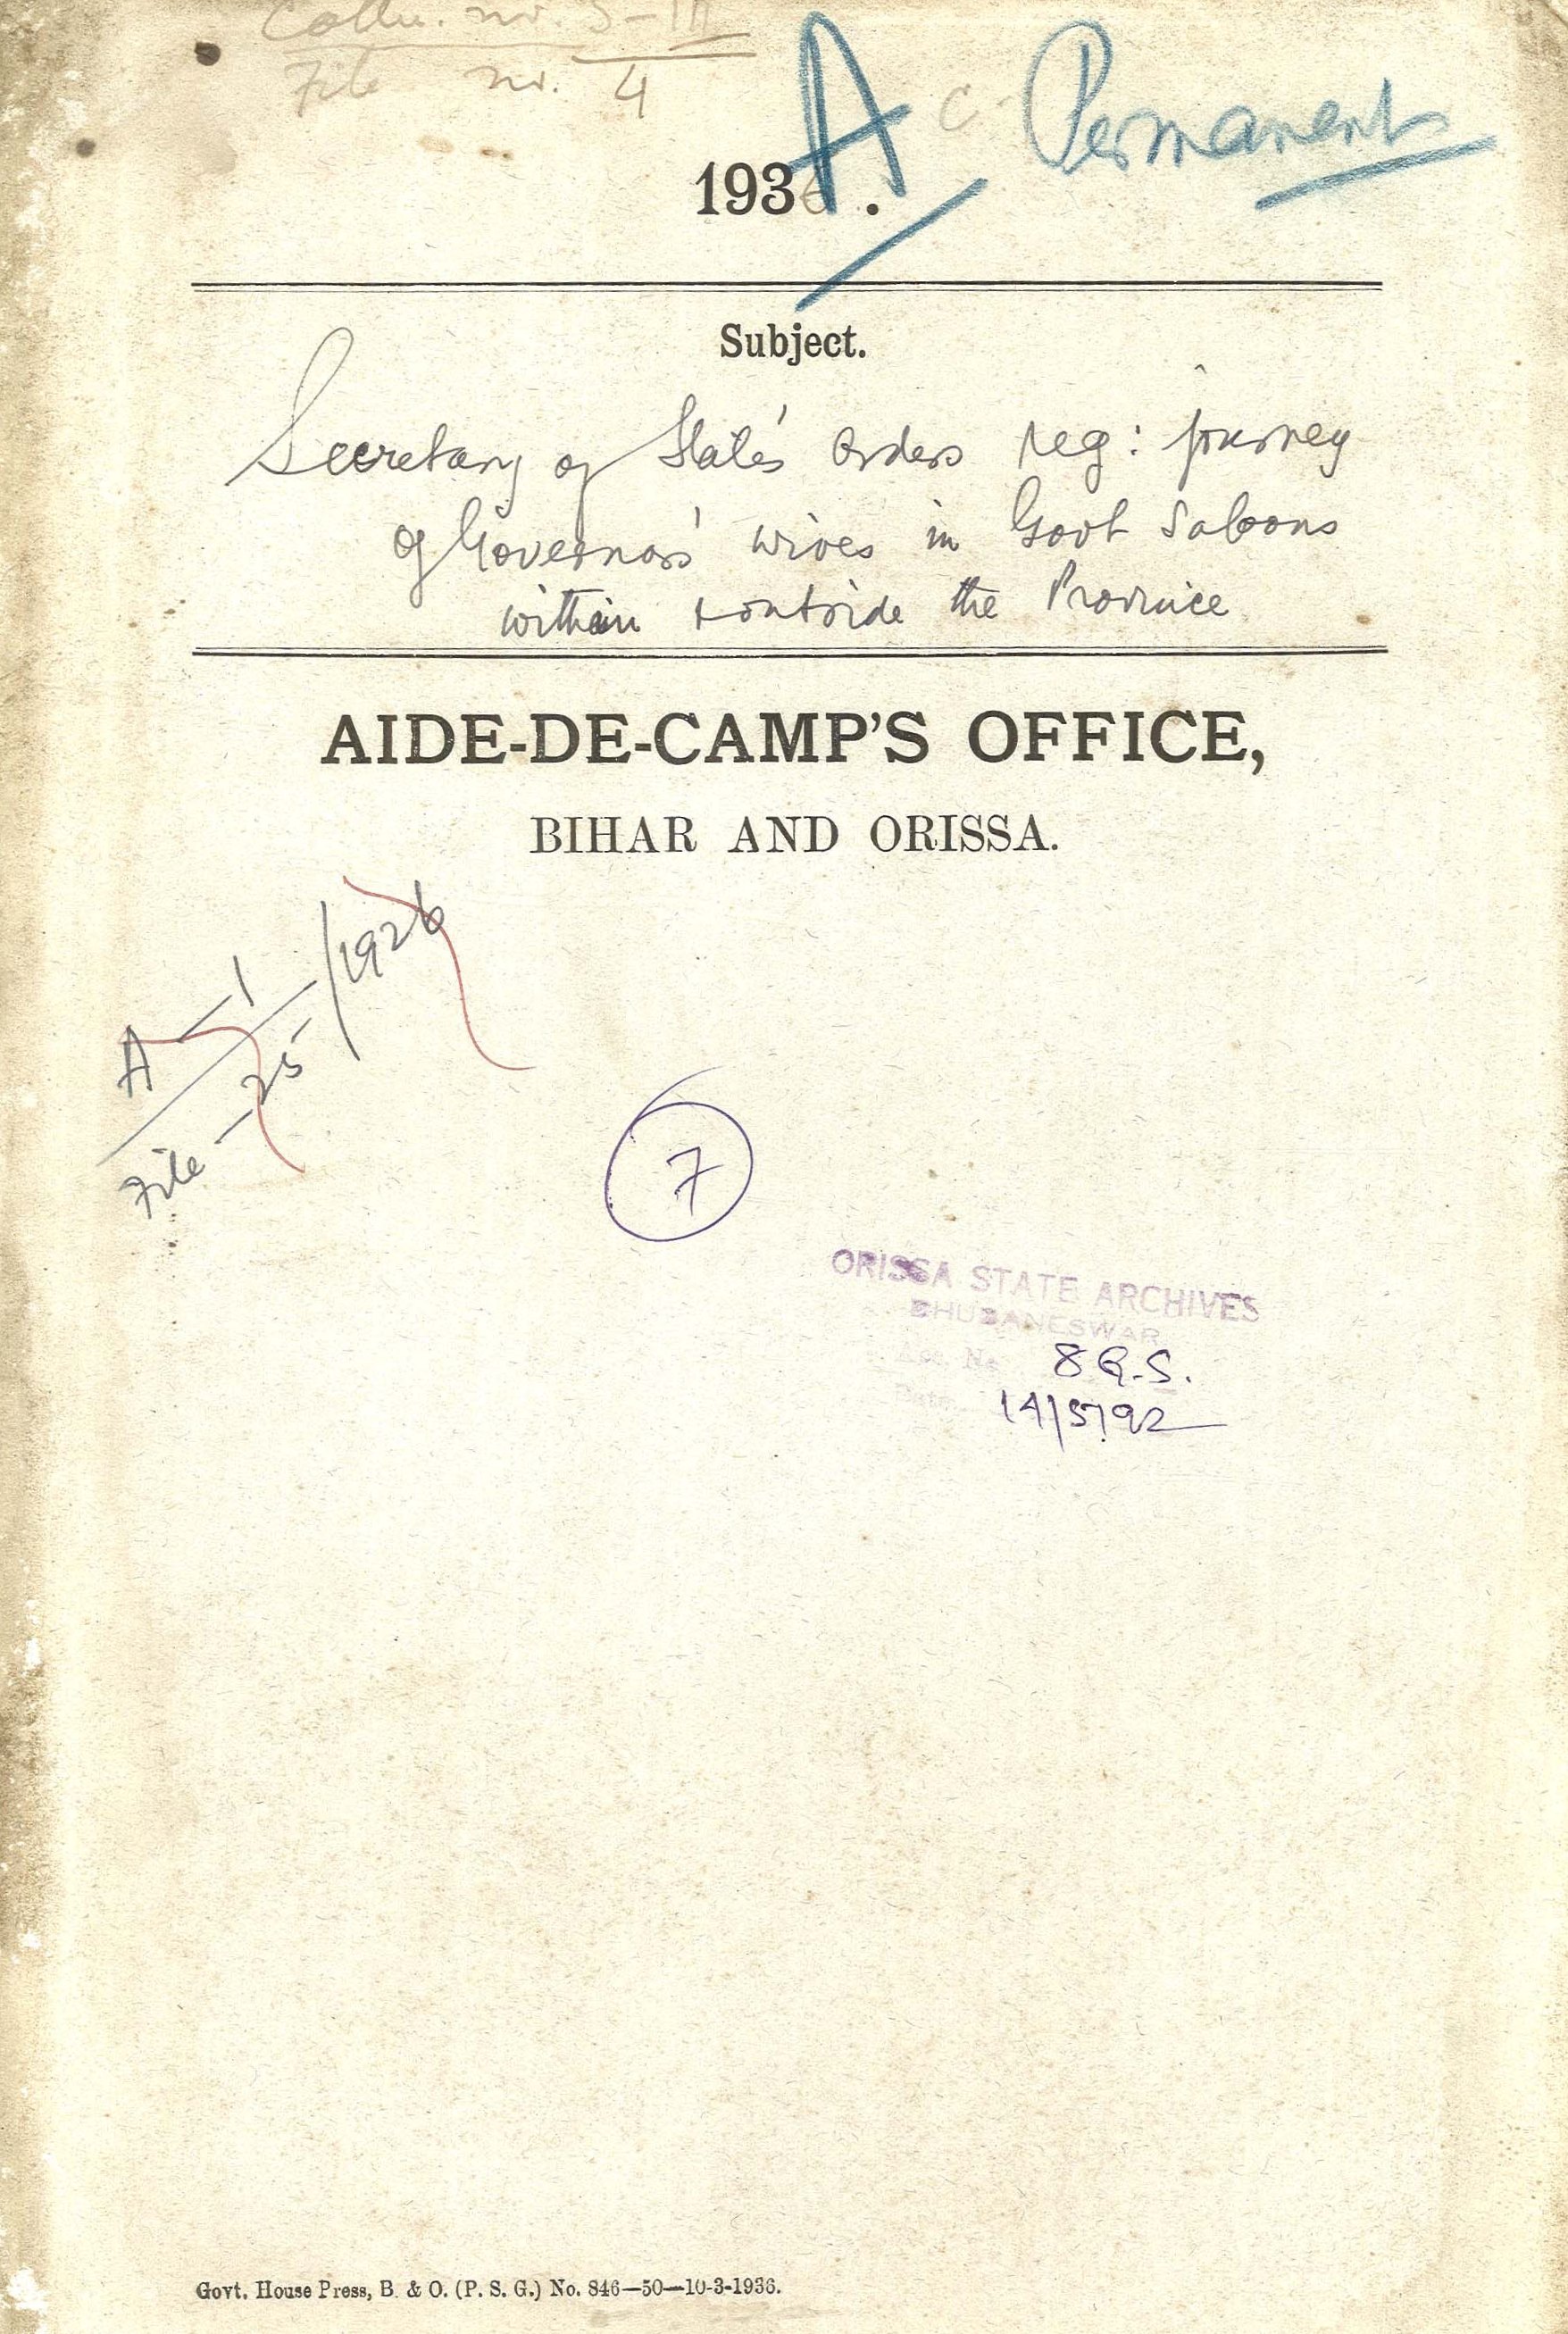 Colln. no. 5-III
File no. 4
A C Permanent
1936.
Subject.
Secretary of State's orders reg: journey
of Governors' wives in Govt Saloons
within & outside the Province
AIDE-DE-CAMP'S OFFICE,
BIHAR AND ORISSA.
A-1
File-25/1926
7
ORISSA STATE ARCHIVES
BHUBANESWAR
Acc. No 8 G.S.
Date 14/5/92
Govt. House Press, B. & O. (P. S. G.) No. 846—50—10-3-1936.